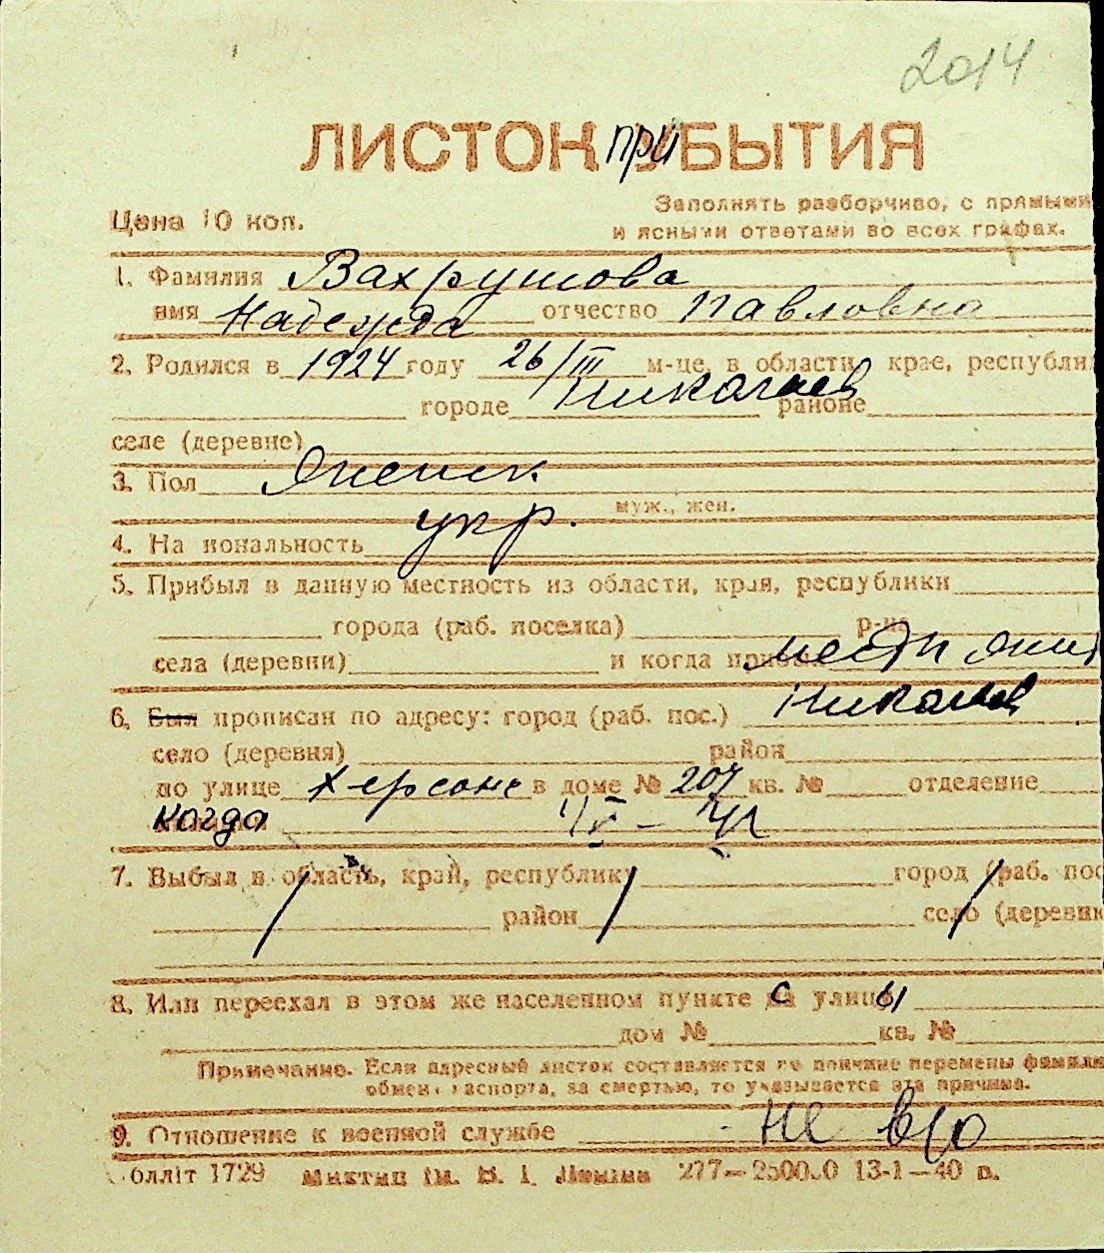 2014
ЛИСТОК ПРИБЫТИЯ
Цена 10 коп.
Заполнять разборчиво, с прямыми
и ясными ответами во всех графах.
1. Фамилия Вахрушова
имя Надежда отчество Павловна
2. Родился в 1924 году 26/III м-це, в области, крае, республи
городе Николаев районе
селе (деревне)
3. Пол Женск
муж., жен.
4. Национальность укр.
5. Прибыл в данную местность из области, края, республики
города (раб. поселка) р-на
села (деревни) и когда прибыл местн жит
6. Был прописан по адресу: город (раб. пос.) Николаев
село (деревня) район
по улице Херсонс в доме № 207 кв. № отделение
когда
7. Выбыл в область, край, республику город (раб. пос
район село (деревня
8. Или переехал в этом же населенном пункте с улицы
дом № кв. №
Примечание. Если адресный листок составляется по причине перемены фамили
обмена паспорта, за смертью, то указывается эта причина.
9. Отношение к военной службе не в/о
блліт 1729 277—250000 13-1—40 в.